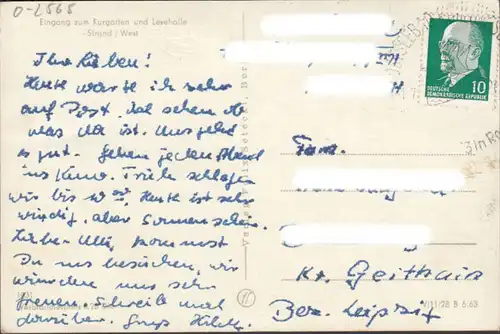 O-L568
Eingang zum Kurgarten und Lesehalle
- Strand / West
Ihr Lieben!
Heute warte ich sehr
auf Post. Mal sehen ob
was da ist. Uns geht
es gut. Gehen jeden Abend
ins Kino. Früh schlafen
wir bis 10 Uhr. Heute ist sehr
windig, aber Sonnenschein.
Lieber Ulli, kommst
Du uns besuchen, wir
würden uns sehr
freuen. Schreib mal
darüber. Gruß Hilde
Fam.
Kr. Geithain
Bez. Leipzig
10
DEUTSCHE
DEMOKRATISCHE REPUBLIK
V 11/28 B 6/63